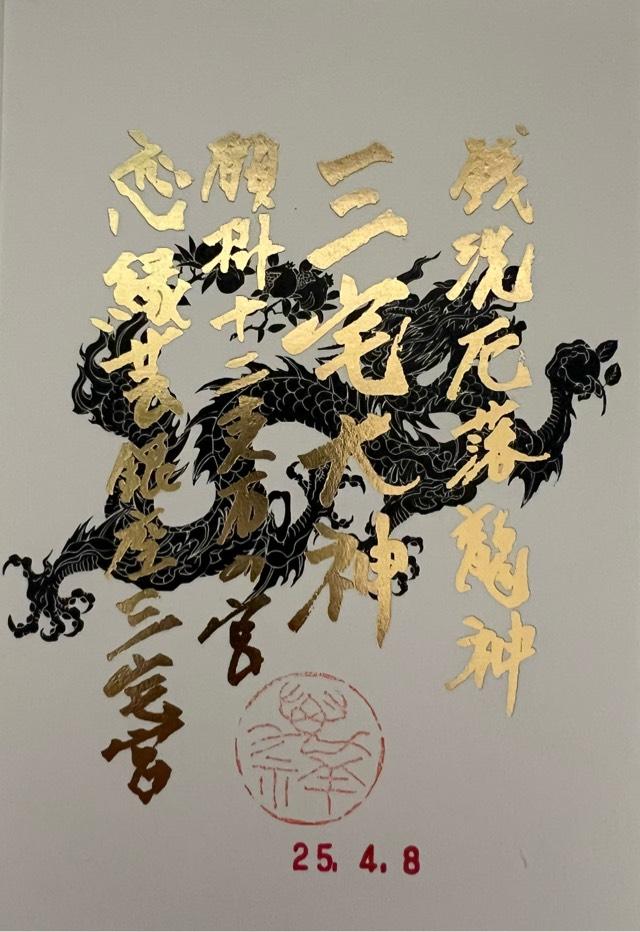 銭洗厄落龍神
三宅大神
願掛十二支石の宮
恋縁芸銀座三宅宮
25. 4. 8